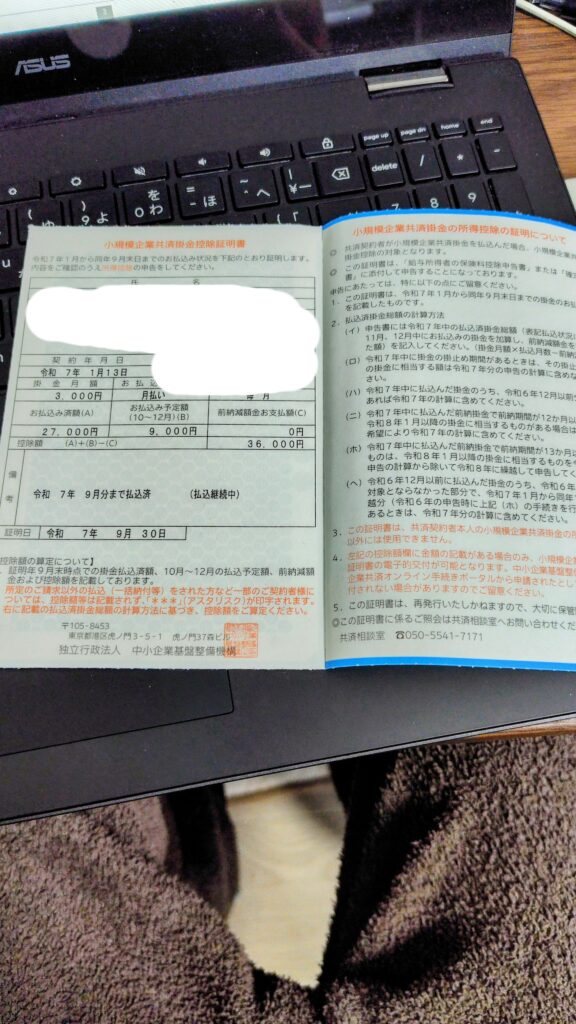 ASUS
page up
page dn
home
end
delete
小規模企業共済掛金控除証明書
令和7年1月から同年9月末日までのお払込み状況を下記のとおり証明します。
内容をご確認のうえ所得控除の申告をしてください。
氏 名
契約年月日
令和 7年 1月13日
掛金月額
3,000円
月払い
毎 月
お払込み済額(A)
お払込み予定額
(10~12月)(B)
前納減額金お支払額(C)
27,000円
9,000円
0円
控除額 (A)+(B)-(C)
36,000円
備考
令和 7年 9月分まで払込済 (払込継続中)
証明日
令和 7年 9月 30日
控除額の算定について】
証明年9月末時点での掛金払込済額、10月~12月の払込予定額、前納減額
金および控除額を記載しております。
所定のご請求以外の払込(一括納付等)をされた方など一部のご契約者様に
ついては、控除額等は記載されず、「***」(アスタリスク)が印字されます。
右に記載の払込済掛金総額の計算方法に基づき、控除額をご算定ください。
〒105-8453
東京都港区虎ノ門3-5-1 虎ノ門37森ビル
独立行政法人 中小企業基盤整備機構
小規模企業共済掛金の所得控除の証明について
◎ 共済契約者が小規模企業共済掛金を払込んだ場合、小規模企業共
掛金控除の対象となります。
◎ この証明書は、「給与所得者の保険料控除申告書」または「確定
書」に添付して申告することになっております。
申告にあたっては、特に以下の点にご留意ください。
1. この証明書は、令和7年1月から同年9月末日までの掛金のお払
を記載したものです。
2. 払込済掛金総額の計算方法
(イ) 申告書には令和7年中の払込済掛金総額(表記払込状況に
11月、12月中にお払込みの掛金を加算し、前納減額金を
た額)を記入してください。(掛金月額×払込月数-前納減
(ロ) 令和7年中に掛金の掛止め期間があるときは、その掛止
の掛金に相当する額は令和7年分の申告の計算に含めな
(ハ) 令和7年中に払込んだ掛金のうち、令和6年12月以前
あれば令和7年の計算に含めてください。
(ニ) 令和7年中に払込んだ前納掛金で前納期間が12か月以
令和8年1月以降の掛金に相当するものがある場合は
希望により令和7年の計算に含めてください。
(ホ) 令和7年中に払込んだ前納掛金で前納期間が13か月
ものは、令和8年1月以降の掛金に相当するものを
申告の計算から除いて令和8年に繰越して申告して
(ヘ) 令和6年12月以前に払込んだ掛金のうち、令和6年
対象とならなかった部分で、令和7年1月から同年
越分(令和6年の申告時に上記(ホ)の手続きを行
あるときは、令和7年分の計算に含めてください。
3. この証明書は、共済契約者本人の小規模企業共済掛金の所
以外には使用できません。
4. 左記の控除額欄に金額の記載がある場合のみ、小規模企
証明書の電子的交付が可能となります。中小企業基盤整
企業共済オンライン手続きポータルから申請されたとし
付されない場合がありますのでご留意ください。
5. この証明書は、再発行いたしかねますので、大切に保管
◎この証明書に係るご照会は共済相談室へお問い合わせくだ
共済相談室 ☎050-5541-7171